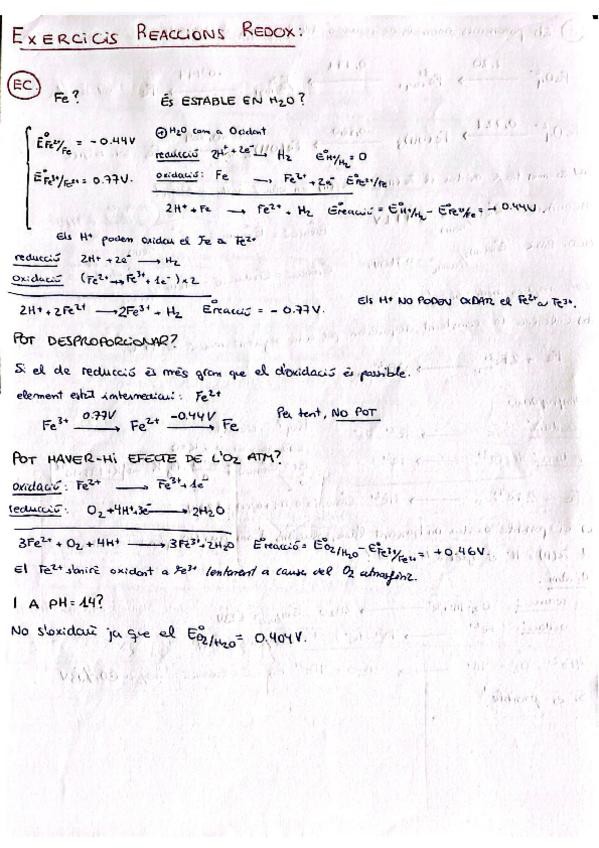 EXERCICIS REACCIONS REDOX:
EC. Fe? ÉS ESTABLE EN H2O?
E°Fe2+/Fe = -0.44V
E°Fe3+/Fe2+ = 0.77V.
⊕ H2O com a Oxidant
reducció 2H+ + 2e- → H2 E°H+/H2 = 0
oxidació: Fe → Fe2+ + 2e- E°Fe2+/Fe
2H+ + Fe → Fe2+ + H2 E°reacció = E°H+/H2 - E°Fe2+/Fe = + 0.44V.
Els H+ poden oxidar el Fe a Fe2+
reducció 2H+ + 2e- → H2
Oxidació (Fe2+ → Fe3+ + 1e-) x2
2H+ + 2Fe2+ → 2Fe3+ + H2 E°reacció = -0.77V. Els H+ NO PODEN OXIDAR el Fe2+ a Fe3+.
POT DESPROPORCIONAR?
Si el de reducció és més gran que el d'oxidació és possible.
element estat intermediari: Fe2+
Fe3+ 0.77V → Fe2+ -0.44V → Fe Per tant, NO POT
POT HAVER-HI EFECTE DE L'O2 ATM?
oxidació: Fe2+ → Fe3+ + 1e-
reducció: O2 + 4H+ + 3e- → 2H2O
3Fe2+ + O2 + 4H+ → 3Fe3+ + 2H2O E°reacció = E°O2/H2O - E°Fe3+/Fe2+ = +0.46V.
El Fe2+ s'anirà oxidant a Fe3+ lentament a causa del O2 atmosfèric.
I A PH = 14?
No s'oxidarà ja que el E°O2/H2O = 0.404V.